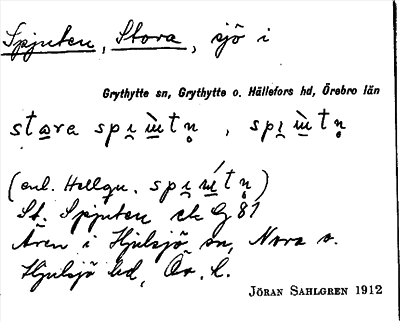 Spjuten, Stora, sjö i
Grythytte sn, Grythytte o. Hällefors hd, Örebro län
stɑra spi̯ɯ̀tn̥, spi̯ɯ̀tn̥
(enl. Hellqu. spi̯ɯ́tn̥)
St. Spjuten ek G 81
Även i Hjulsjö sn, Nora o.
Hjulsjö hd, Ör. l.
JÖRAN SAHLGREN 1912